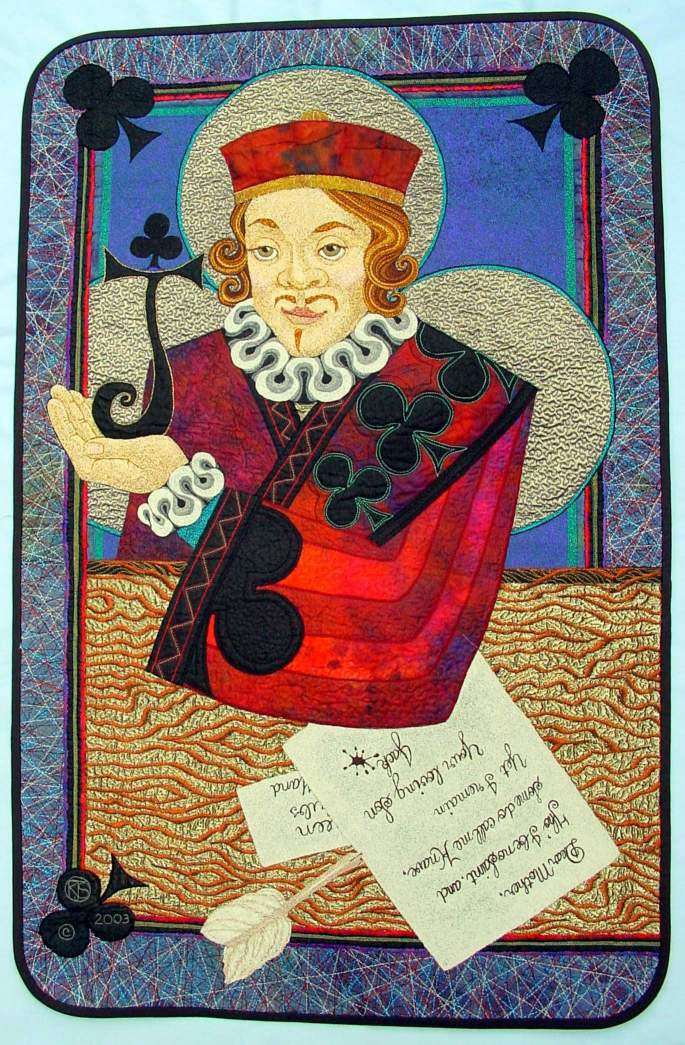 J
Dear Mother,
Tho' I be no saint, and
some do call me Knave,
Yet I remain
Your loving Son
Jack
een
ubs
land
© 2003